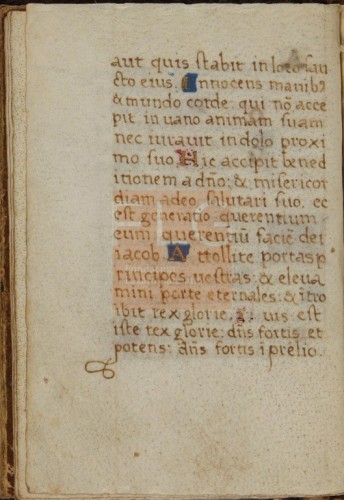 aut quis stabit in loco san
cto eius. Innocens manibꝰ
& mundo corde: qui nō acce
pit in uano animam suam
nec iurauit in dolo proxi
mo suo. Hic accipit bened
itionem a dño: & misericor
diam a deo salutari suo. ec
est generatio querentium
eum querentiū faciē dei
iacob. Attollite portas p
rincipes uestras: & eleua
mini porte eternales: & ītro
ibit rex glorie. uis est
iste rex glorie: dñs fortis et
potens: dñs fortis ī prelio.